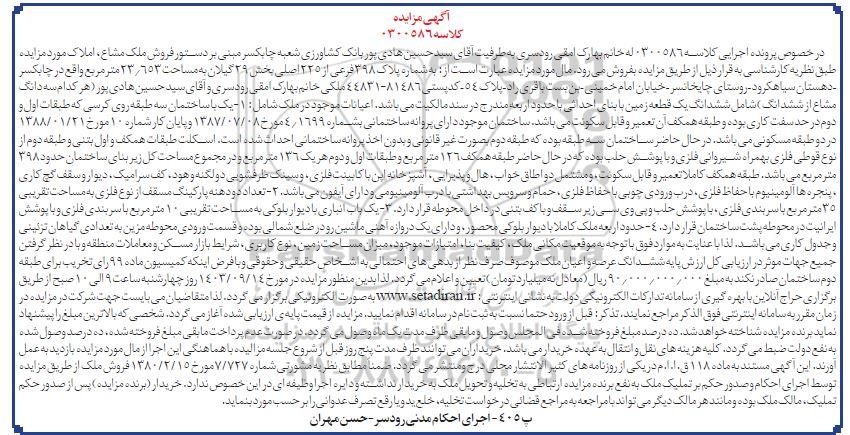 آگهی مزایده
کلاسه ۰۳۰۰۵۸۶
در خصوص پرونده اجرایی کلاسه ۰۳۰۰۵۸۶ له خانم بهارک امقی رودسری به طرفیت آقای سیدحسین هادی پور بانک کشاورزی شعبه چابکسر مبنی بر دستور فروش ملک مشاع، املاک مورد مزایده
طبق نظریه کارشناسی به قرار ذیل از طریق مزایده بفروش می رود. مال مورد مزایده عبارت است از: به شماره پلاک ۳۹۸ فرعی از ۲۲۵ اصلی بخش ۲۹ گیلان به مساحت ۲۳٫۶۵۳ متر مربع واقع در چابکسر
-دهستان سیاهکلرود-روستای چایخانسر-خیابان امام خمینی-بن بست باقری راد-پلاک ۵۴- کدپستی ۸۱۴۸۶-۴۴۸۳۱ ملکی خانم بهارک امقی رودسری و آقای سیدحسین هادی پور (هر کدام سه دانگ
مشاع از ششدانگ) شامل ششدانگ یک قطعه زمین با بنای احداثی با حدود اربعه مندرج در سند مالکیت می باشد. اعیانات موجود در ملک شامل: ۱-یک باب ساختمان سه طبقه روی کرسی که طبقات اول و
دوم در حد سفت کاری بوده و طبقه همکف آن تعمیر و قابل سکونت می باشد. ساختمان موجود دارای پروانه ساختمانی بشماره ۴/۱۶۹۹ مورخ ۱۳۸۷/۰۷/۰۸ و پایان کار شماره ۱۰ مورخ ۱۳۸۸/۰۱/۲۱
در دو طبقه مسکونی می باشد. در حال حاضر ساختمان سه طبقه بوده که طبقه دوم بصورت غیر قانونی و بدون اخذ پروانه ساختمانی احداث شده است. اسکلت طبقات همکف و اول بتنی و طبقه دوم از
نوع قوطی فلزی بهمراه شیروانی فلزی و با پوشش حلب بوده که در حال حاضر طبقه همکف ۱۲۶ متر مربع و طبقات اول و دوم هر یک ۱۳۶ متر مربع و در مجموع مساحت کل زیربنای ساختمان حدود ۳۹۸
متر مربع می باشد. طبقه همکف کاملا تعمیر و قابل سکونت، و مشتمل دو اطاق خواب، هال و پذیرایی، آشپزخانه این با کابینت فلزی، و سینک ظرفشویی دولگنه و هود، کف سرامیک، دیوار و سقف گچ کاری
، پنجره ها آلومینیوم با حفاظ فلزی، درب ورودی چوبی با حفاظ فلزی، حمام و سرویس بهداشتی با درب آلومینیومی و دارای آیفون می باشد. ۲-تعداد دو دهنه پارکینگ مسقف از نوع فلزی به مساحت تقریبی
۳۵ متر مربع با سربندی فلزی، با پوشش حلب و پی وی سی زیر سقف و با کف بتنی در داخل محوطه قرار دارد. ۳-یک باب انباری با دیوار بلوکی به مساحت تقریبی ۱۰ متر مربع با سربندی فلزی و با پوشش
ایرانیت در محوطه پشت ساختمان قرار دارد. ۴-حدود اربعه ملک کاملا با دیوار بلوکی محصور، و دارای یک دروازه آهنی ماشین رو در ضلع شمالی بوده و قسمت ورودی محوطه مزین به تعدادی گیاهان تزئینی
و جدول کاری می باشد. لذا با عنایت به موارد فوق با توجه به موقعیت مکانی ملک، کیفیت بناء، امتیازات موجود، میزان مساحت زمین، نوع کاربری، شرایط بازار مسکن و معاملات منطقه و با در نظر گرفتن
جمیع جهات موثر در ارزیابی کل ارزش پایه ششدانگ عرصه و اعیان ملک موصوف صرف نظر از بدهی های احتمالی به اشخاص حقیقی و حقوقی و با فرض اینکه کمیسیون ماده ۹۹ رای تخریب برای طبقه
دوم ساختمان صادر نکند به مبلغ ۹۰٫۰۰۰٫۰۰۰٫۰۰۰ ریال (معادل نه میلیارد تومان) تعیین و اعلام می گردد. لذا بدین منظور مزایده در مورخ ۱۴۰۳/۰۹/۱۴ روز چهارشنبه ساعت ۹ الی ۱۰ صبح از طریق
برگزاری حراج آنلاین با بهره گیری از سامانه تدارکات الکترونیکی دولت به نشانی اینترنتی: www.setadiran.ir به صورت الکترونیکی برگزار می گردد. لذا متقاضیان می بایست جهت شرکت در مزایده در
زمان مقرر به سامانه اینترنتی فوق الذکر مراجعه نمایند. تذکر: قبل از ورود حتما نسبت به ثبت نام در سامانه اقدام نمایید. مزایده از قیمت پایه ی ارزیابی شده آغاز می گردد. شخصی که بالاترین مبلغ را پیشنهاد
نماید برنده مزایده شناخته خواهد شد. ده درصد مبلغ فروخته شده فی المجلس وصول و مابقی ظرف مدت یک ماه وصول می گردد. در صورت عدم پرداخت مابقی مبلغ فروخته شده، ده درصد وصول شده
به نفع دولت ضبط می گردد. کلیه هزینه های نقل و انتقال به عهده خریدار می باشد. خریداران می توانند ظرف مدت پنج روز قبل از شروع جلسه مزایده با هماهنگی این اجرا از مال مورد مزایده بازدید به عمل
آورند. این آگهی مستند به ماده ۱۱۸ ق.ا.ا.م در یکی از روزنامه های کثیر الانتشار محلی درج و منتشر می گردد. ضمنا مطابق نظریه مشورتی شماره ۷/۷۲۷ مورخ ۱۳۸۰/۲/۱۵ فروش ملک از طریق مزایده
توسط اجرای احکام و صدور حکم بر تملیک ملک به نفع برنده مزایده ارتباطی به تخلیه و تحویل ملک به خریدار نداشته و دایره اجرا وظیفه ای در این خصوص ندارد. خریدار (برنده مزایده) پس از صدور حکم
تملیک، مالک ملک بوده و مانند هر مالک دیگر می تواند با مراجعه به مراجع قضائی درخواست تخلیه، خلع ید و یا رفع تصرف عدوانی را بر حسب مورد بنماید.
پ ۴۰۵- اجرای احکام مدنی رودسر- حسن مهران